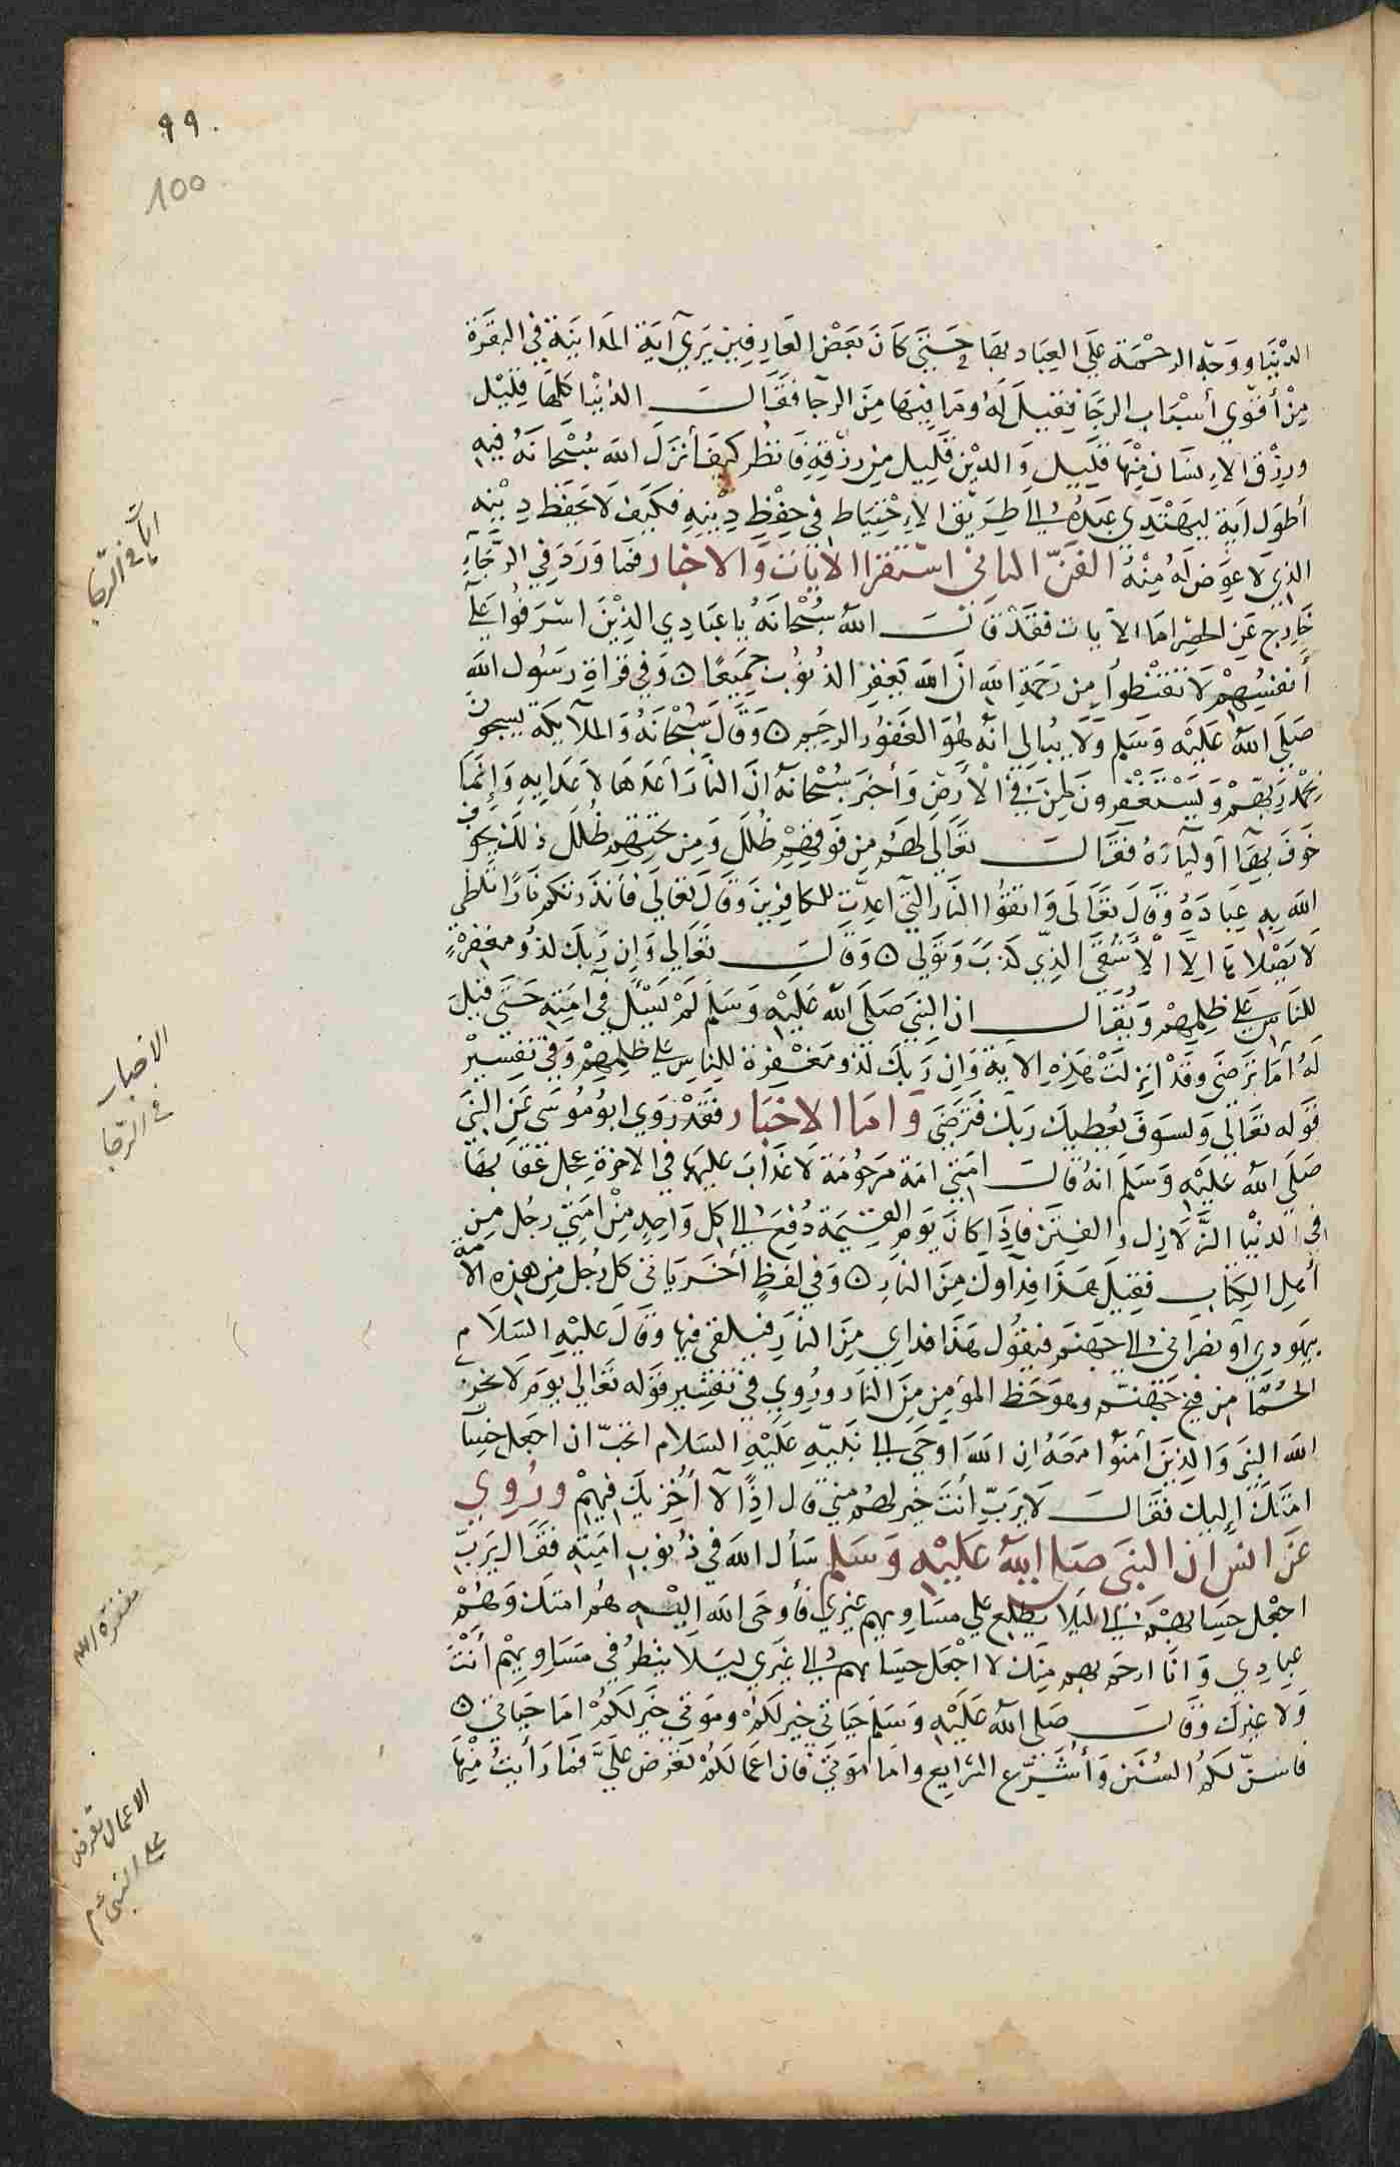 99.
100
الدنيا ووجه الرحمة على العباد بها حتى كان بعض العارفين يرى آية المداينة في البقرة
من أقوى أسباب الرجا فقيل له وما فيها من الرجا فقال الدنيا كلها قليل
ورزق الانسان منها قليل والدين قليل من رزقه فانظر كيف أنزل الله سبحانه فيه
أطول اية ليهتدي عبده الى طريق الاحتياط في حفظ دينه فكيف لا يحفظ دينه
الذي لا عوض له منه الفن الثاني استقرا الايات والاخبار فما ورد في الرجاء
خارج عن الحصر اما الايات فقد قال الله سبحانه يا عبادي الذين اسرفوا على
أنفسهم لا تقنطوا من رحمة الله ان الله يغفر الذنوب جميعا ۝ وفي قراة رسول الله
صلى الله عليه وسلم ولا يبالي انه هو الغفور الرحيم ۝ وقال سبحانه والملايكة يسبحون
بحمد ربهم ويستغفرون لمن في الأرض وأخبر سبحانه ان النار أعدها لاعدايه وإنما
خوف بها أولياءه فقال تعالى لهم من فوقهم ظلل ومن تحتهم ظلل ذلك يخوف
الله به عباده وقال تعالى واتقوا النار التي اعدت للكافرين وقال تعالى فأنذرتكم نارا تلظى
لا يصلاها الا الأشقى الذي كذب وتولى ۝ وقال تعالى وان ربك لذو مغفرة
للناس على ظلمهم ويقال ان النبي صلى الله عليه وسلم لم يسل في امته حتى قيل
له اما ترضى وقد انزلت هذه الاية وان ربك لذو مغفرة للناس على ظلمهم وفي تفسير
قوله تعالى ولسوف يعطيك ربك فترضى واما الاخبار فقد روى ابو موسى عن النبي
صلى الله عليه وسلم انه قال امتي امة مرحومة لا عذاب عليها في الاخرة عجل عقابها
في الدنيا الزلازل والفتن فاذا كان يوم القيمة دفع الى كل واحد من امتي رجل من
أهل الكتاب فقيل هذا فداؤك من النار ۝ وفي لفظ أخر ياتي كل رجل من هذه الامة
بيهودي أو نصراني الى جهنم فيقول هذا فداي من النار فيلقى فيها وقال عليه السلام
الحمى من فيح جهنم وهو حظ المؤمن من النار وروي في تفسير قوله تعالى يوم لا يخزي
الله النبي والذين آمنوا معه ان الله اوحى الى نبيه عليه السلام اتحب ان اجعل حساب
امتك إليك فقال لا يرب أنت خير لهم مني قال اذا لا أخزيك فيهم وروي
عن انس ان النبي صلى الله عليه وسلم سأل الله في ذنوب امته فقال يرب
اجعل حسابهم الى ليلا يطلع على مساويهم غيري فأوحى الله اليه هم امتك وهم
عبادي وانا ارحم بهم منك لا اجعل حسابهم الى غيري ليلا ينظر في مساويهم أنت
ولا غيرك وقال صلى الله عليه وسلم حياتي خير لكم وموتي خير لكم اما حياتي ۝
فاسن لكم السنن وأشرع الشرايع واما موتي فان اعمالكم تعرض علي فما رأيت منها
في الرجا
الاخبار
في الرجا
الاعمال تعرض
على النبي عم